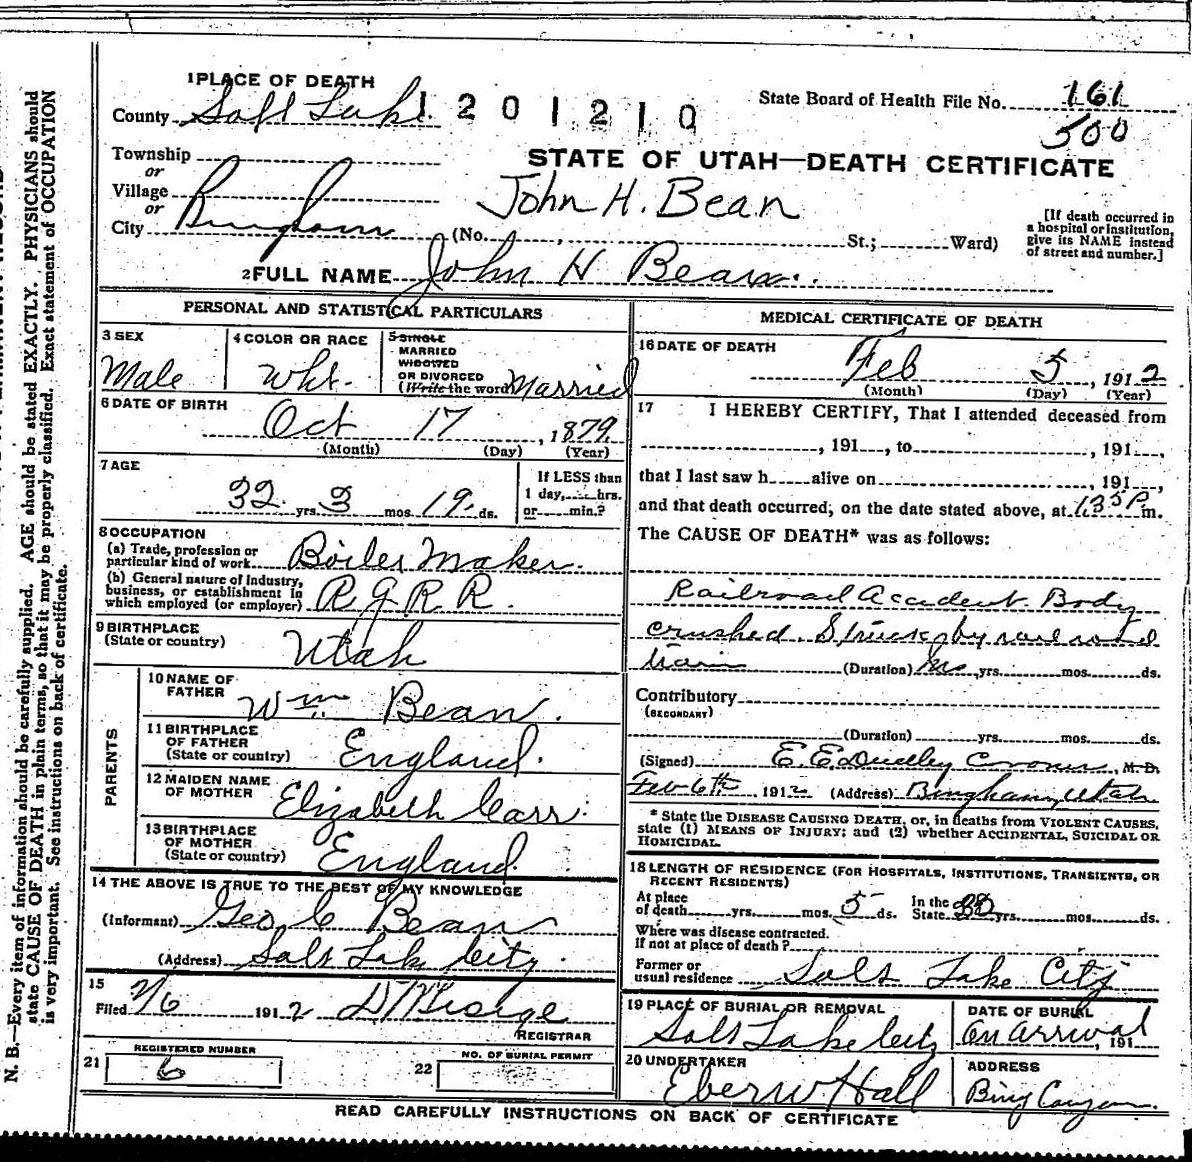 1 PLACE OF DEATH
County Salt Lake
1 2 0 1 2 1 0
State Board of Health File No. 161
500
Township
or
Village
or
City Bingham
STATE OF UTAH—DEATH CERTIFICATE
John H. Bean
(No. , St.; Ward)
[If death occurred in
a hospital or institution,
give its NAME instead
of street and number.]
2 FULL NAME John H Bean.
PERSONAL AND STATISTICAL PARTICULARS
3 SEX
Male
4 COLOR OR RACE
Wht.
5 SINGLE
MARRIED
WIDOWED
OR DIVORCED
(Write the word) Married
6 DATE OF BIRTH
Oct 17, 1879
(Month) (Day) (Year)
7 AGE
32 yrs. 3 mos. 19 ds.
If LESS than
1 day, hrs.
or min.?
8 OCCUPATION
(a) Trade, profession or
particular kind of work Boiler Maker.
(b) General nature of industry,
business, or establishment in
which employed (or employer) R G R R.
9 BIRTHPLACE
(State or country) Utah
PARENTS
10 NAME OF
FATHER Wm Bean.
11 BIRTHPLACE
OF FATHER
(State or country) England.
12 MAIDEN NAME
OF MOTHER Elizabeth Carr.
13 BIRTHPLACE
OF MOTHER
(State or country) England
14 THE ABOVE IS TRUE TO THE BEST OF MY KNOWLEDGE
(Informant) Geo C Bean
(Address) Salt Lake City.
15
Filed 2/6 1912
REGISTRAR
21 REGISTERED NUMBER
6
22 NO. OF BURIAL PERMIT
MEDICAL CERTIFICATE OF DEATH
16 DATE OF DEATH
Feb 5, 1912
(Month) (Day) (Year)
17 I HEREBY CERTIFY, That I attended deceased from
, 191 , to , 191 ,
that I last saw h alive on , 191 ,
and that death occurred, on the date stated above, at 1:35 P. m.
The CAUSE OF DEATH* was as follows:
Railroad Accident. Body
crushed Struck by railroad
train (Duration) yrs. mos. ds.
Contributory
(SECONDARY)
(Duration) yrs. mos. ds.
(Signed) E. E. Dudley Coroner, M.D.
Feb 6th, 1912 (Address) Bingham, Utah
* State the DISEASE CAUSING DEATH, or, in deaths from VIOLENT CAUSES,
state (1) MEANS OF INJURY; and (2) whether ACCIDENTAL, SUICIDAL OR
HOMICIDAL.
18 LENGTH OF RESIDENCE (FOR HOSPITALS, INSTITUTIONS, TRANSIENTS, OR
RECENT RESIDENTS)
At place
of death yrs. mos. 5 ds. In the
State yrs. mos. ds.
Where was disease contracted.
if not at place of death?
Former or
usual residence Salt Lake City
19 PLACE OF BURIAL OR REMOVAL
Salt Lake City
DATE OF BURIAL
On arrival, 191
20 UNDERTAKER
Eber W Hall
ADDRESS
Bing Canyon.
READ CAREFULLY INSTRUCTIONS ON BACK OF CERTIFICATE
N. B.—Every item of information should be carefully supplied. AGE should be stated EXACTLY. PHYSICIANS should
state CAUSE OF DEATH in plain terms, so that it may be properly classified. Exact statement of OCCUPATION
is very important. See instructions on back of certificate.